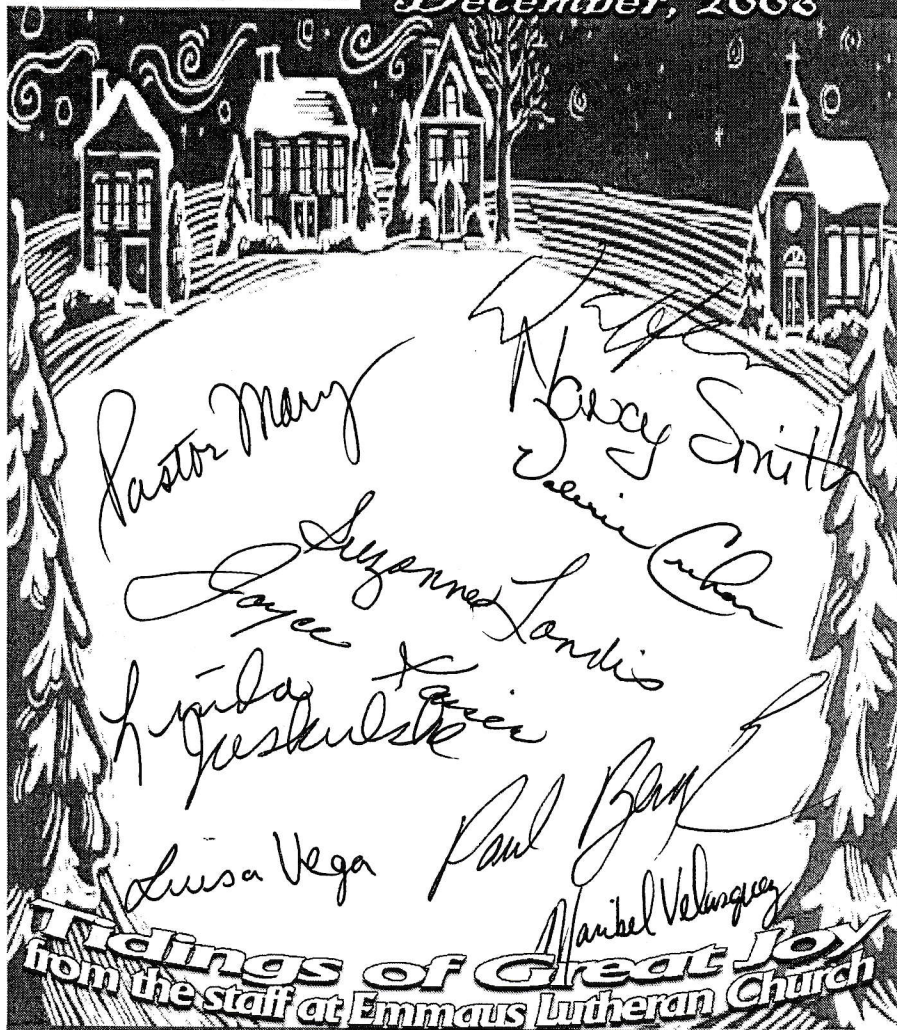 December, 2008
Pastor Mary
Nancy Smith
Valerie
Suzanne Landis
Joyce
Linda
Luisa Vega
Paul
Maribel Velasquez
Tidings of Great Joy
from the staff at Emmaus Lutheran Church